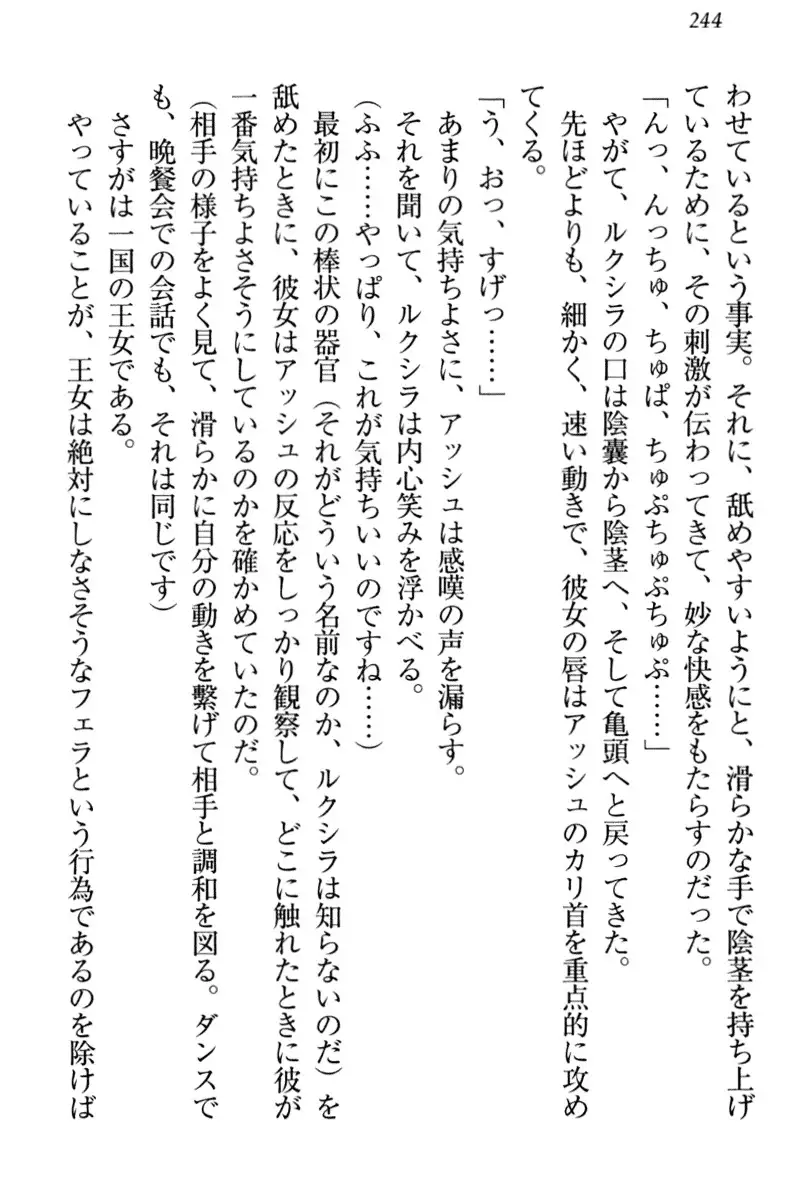 244
わせているという事実。それに、舐めやすいようにと、滑らかな手で陰茎を持ち上げ
ているために、その刺激が伝わってきて、妙な快感をもたらすのだった。
「んっ、んっちゅ、ちゅぱ、ちゅぷちゅぷちゅぷ……」
やがて、ルクシラの口は陰嚢から陰茎へ、そして亀頭へと戻ってきた。
先ほどよりも、細かく、速い動きで、彼女の唇はアッシュのカリ首を重点的に攻め
てくる。
「う、おっ、すげっ……」
あまりの気持ちよさに、アッシュは感嘆の声を漏らす。
それを聞いて、ルクシラは内心笑みを浮かべる。
(ふふ……やっぱり、これが気持ちいいのですね……)
最初にこの棒状の器官(それがどういう名前なのか、ルクシラは知らないのだ)を
舐めたときに、彼女はアッシュの反応をしっかり観察して、どこに触れたときに彼が
一番気持ちよさそうにしているのかを確かめていたのだ。
(相手の様子をよく見て、滑らかに自分の動きを繋げて相手と調和を図る。ダンスで
も、晩餐会での会話でも、それは同じです)
さすがは一国の王女である。
やっていることが、王女は絶対にしなさそうなフェラという行為であるのを除けば